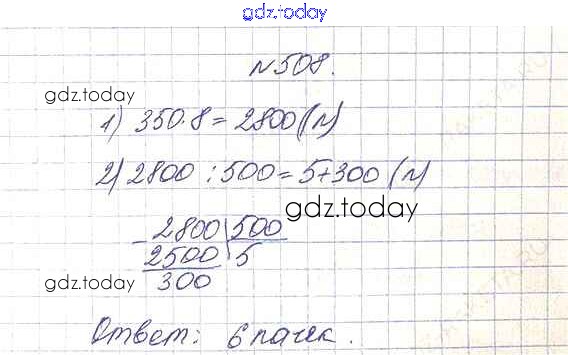 gdz.today
№508.
gdz.today
1) 350·8=2800 (л)
2) 2800:500=5+300 (л)
gdz.today
-2800 500
2500 5
gdz.today
300
Ответ: 6 пачек.